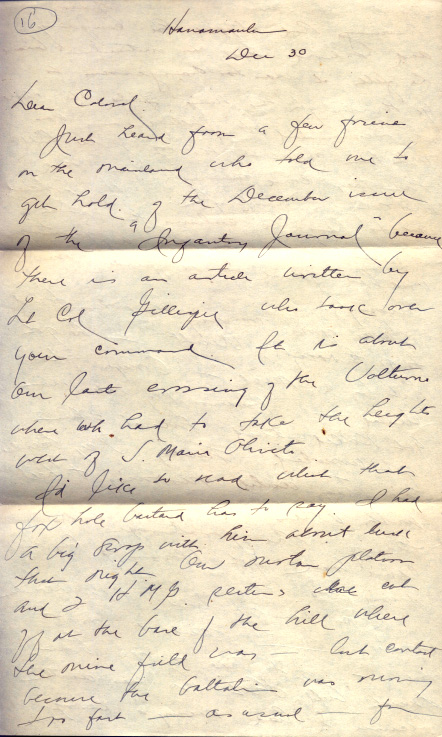 16
Hanamaulu
Dec 30
Dear Colonel,
Just heard from a few friend
on the mainland who told me to
get hold of the December issue
of the "Infantry Journal" because
there is an article written by
Lt Col Gillespie who took over
your command. It is about
our last crossing of the Volturno
where we had to take the heights
west of S. Maria Oliveto
I'd like to read what that
fox hole bastard has to say. I had
a big scrap with him about
that night. Our mortar platoon
and 2 H.M.G. sections were cut
off at the base of the hill where
the mine field was — lost contact
because the battalion was moving
too fast — as usual — for